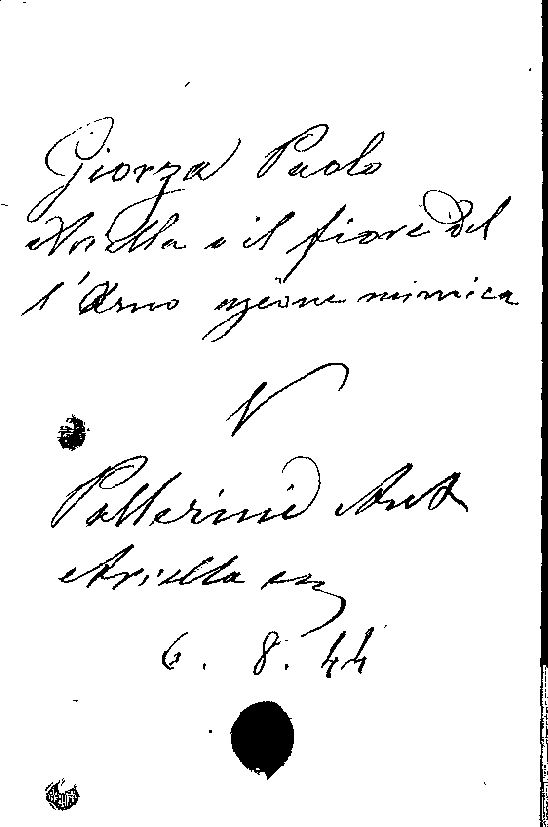 Giorza Paolo
Ariella e il fiore del
l'Arno azione mimica
V
Pallerini Ant
Ariella ec
6. 8. 44